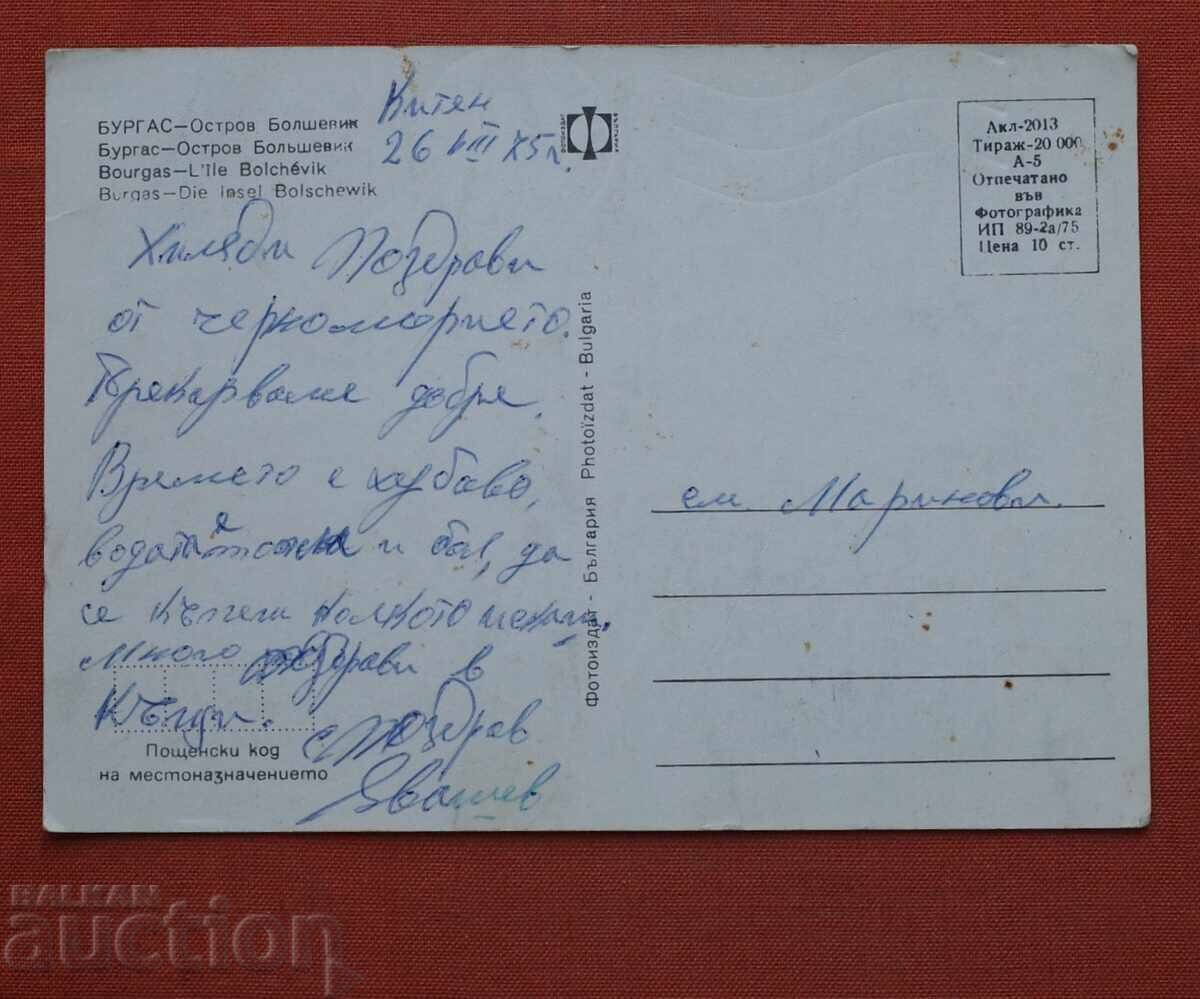 БУРГАС—Остров Болшевик
Бургас—Остров Большевик
Bourgas—L'île Bolchévik
Burgas—Die Insel Bolschewik
Китен
26 VIII 75г.
ФОТОИЗДАТ
Акл-2013
Тираж-20 000
А-5
Отпечатано
във
Фотографика
ИП 89-2а/75
Цена 10 ст.
Хиляди Поздрави
от черноморието.
Прекарваме добре.
Времето е хубаво,
водата е и да
се къпеш колкото искаш.
Много поздрави в
с Поздрав
Пощенски код
на местоназначението
Фотоиздат - България Photoïzdat - Bulgaria
сем. Маринови.
BALKAN
auction